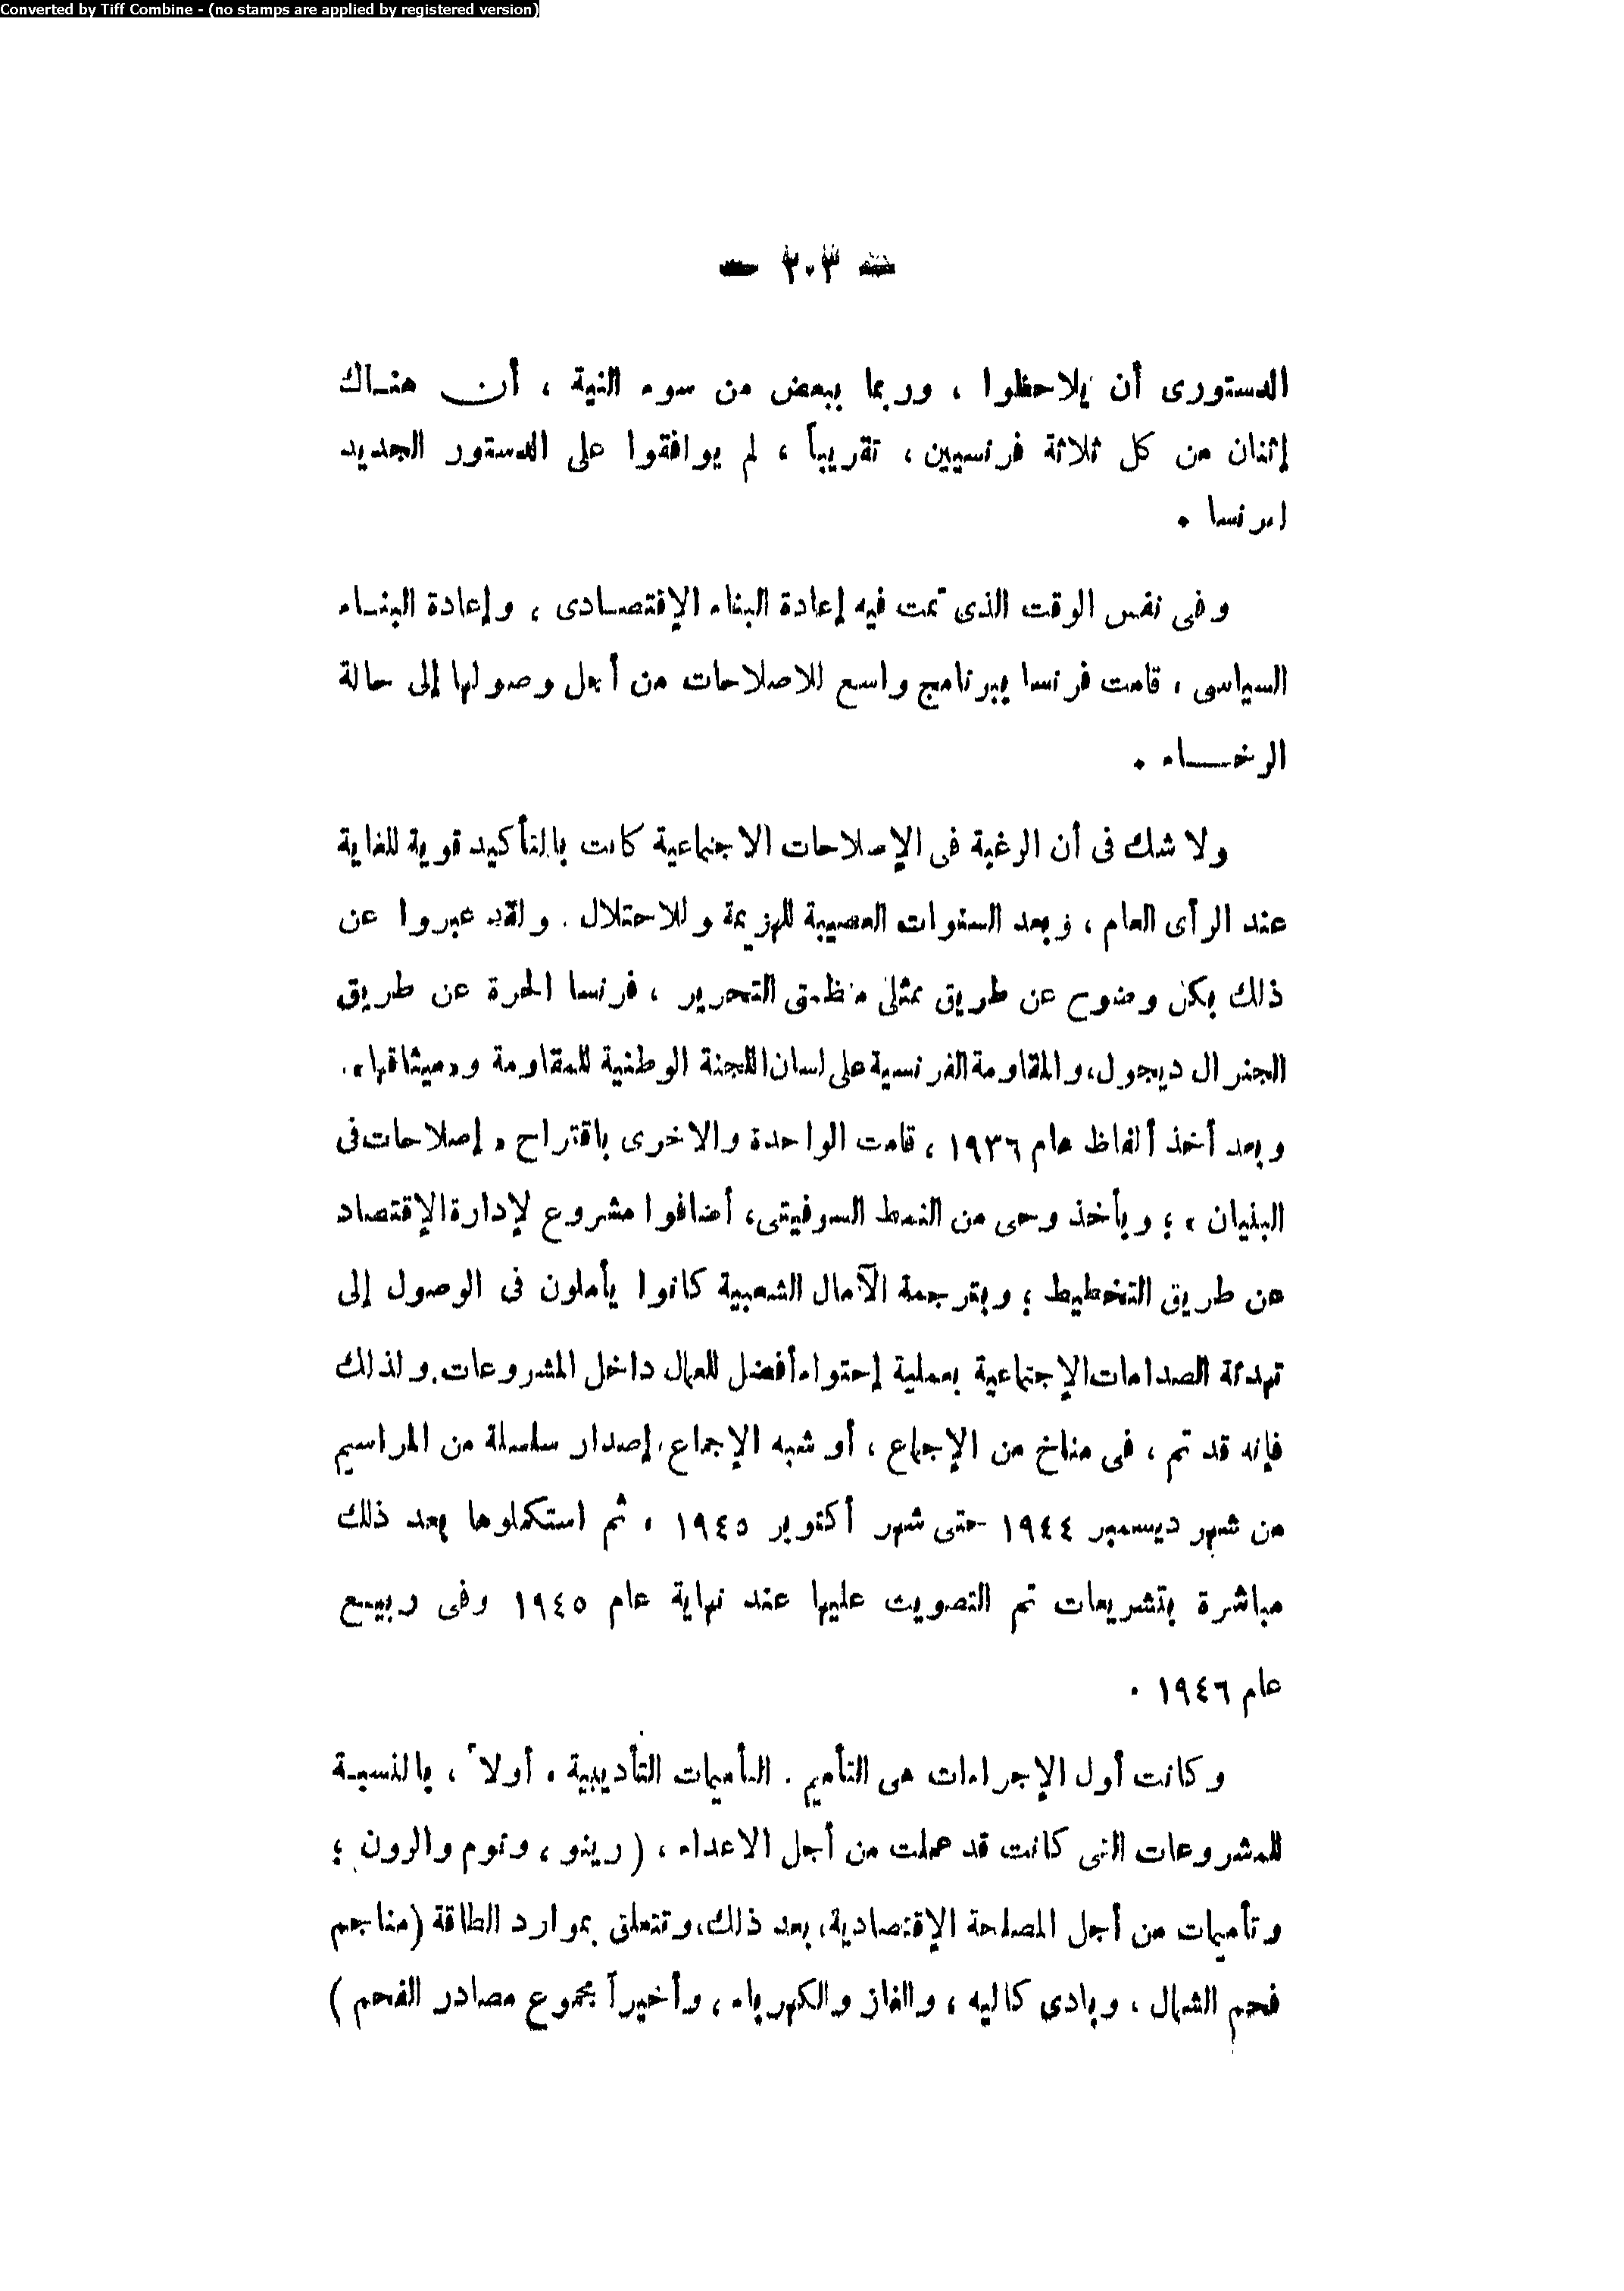 Converted by Tiff Combine - (no stamps are applied by registered version)
— ٣٠٣ —
الدستورى أن يلاحظوا ، وربما ببعض من سوء النية ، أن هنــاك
إثنان من كل ثلاثة فرنسيين ، تقريباً ، لم يوافقوا على الدستور الجديد
لفرنسا .
وفى نفس الوقت الذى تمت فيه إعادة البناء الإقتصــادى ، وإعادة البنــاء
السياسى ، قامت فرنسا ببرنامج واسع للاصلاحات من أجل وصولها إلى حالة
الرخـــاء .
ولا شك فى أن الرغبة فى الإصلاحات الاجتماعية كانت بالتأكيد قوية للغاية
عند الرأى العام ، وبعد السنوات العصيبة للهزيمة وللاحتلال . ولقد عبروا عن
ذلك بكل وضوح عن طريق ممثلى منظمتى التحرير ، فرنسا الحرة عن طريق
الجنرال ديجول، والمقاومة الفرنسية على لسان اللجنة الوطنية للمقاومة و«ميثاقها».
وبعد أخذ ألفاظ عام ١٩٣٦ ، قامت الواحدة والاخرى باقتراح « إصلاحات فى
البنيان » ؛ وبأخذ وحى من النمط السوفيتى، أضافوا مشروع لإدارة الإقتصاد
عن طريق التخطيط ؛ وبترجمة الآمال الشعبية كانوا يأملون فى الوصول إلى
تهدئة الصدامات الإجتماعية بعملية إحتواء أفضل للعمال داخل المشروعات. ولذلك
فإنه قد تم ، فى مناخ من الإجماع ، أو شبه الإجماع، إصدار سلسلة من المراسيم
من شهر ديسمبر ١٩٤٤ حتى شهر أكتوبر ١٩٤٥ ، ثم استكملوها بعد ذلك
مباشرة بتشريعات تم التصويت عليها عند نهاية عام ١٩٤٥ وفى ربيــع
عام ١٩٤٦ .
وكانت أول الإجراءات هى التأميم . التأميمات التأديبية ، أولاً ، بالنسبــة
للمشروعات التى كانت قد عملت من أجل الاعداء ، ( رينو ، ونوم والرون ؛
وتأميمات من أجل المصلحة الإقتصادية، بعد ذلك، وتتعلق بموارد الطاقة (مناجم
فحم الشمال ، وبادى كاليه ، والغاز والكهرباء ، وأخيراً مجموع مصادر الفحم )